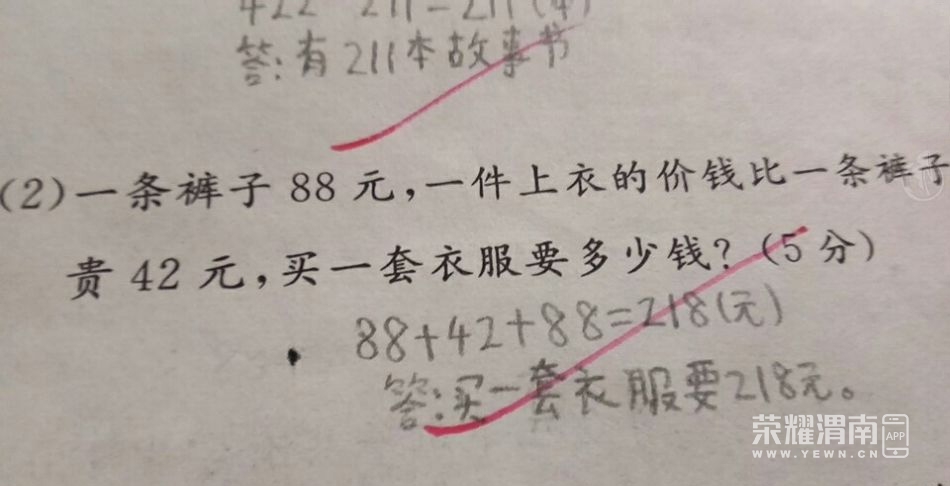 422 211=211(本)
答:有211本故事书
(2)一条裤子 88 元,一件上衣的价钱比一条裤子
贵 42 元,买一套衣服要多少钱?(5 分)
88+42+88=218(元)
答:买一套衣服要218元。
荣耀渭南 APP
WWW.YEWN.CN